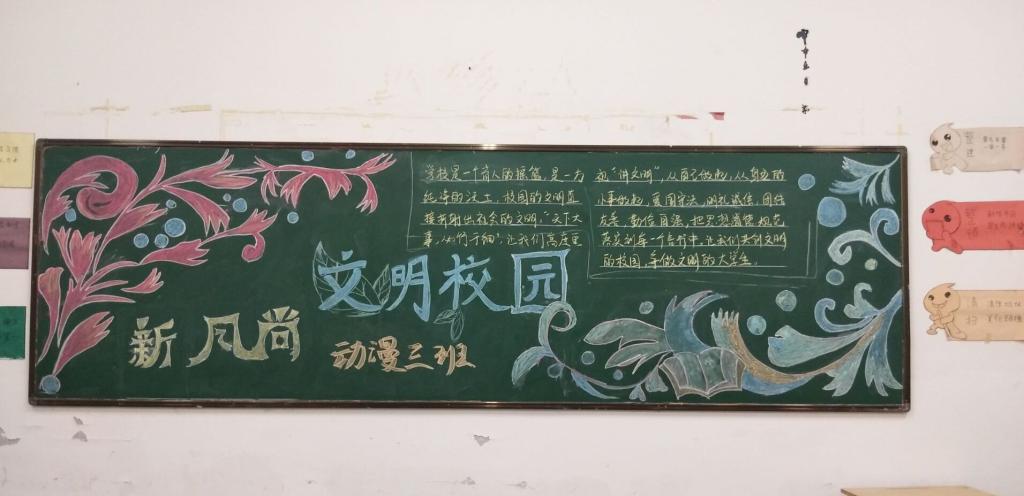 学校是一个育人的摇篮,是一方
纯净的沃土。校园的文明直
接折射出社会的文明,"天下大
事,必作于细",让我们高度重
视"讲文明",从自己做起,从身边的
小事做起,爱国守法,明礼诚信,团结
友善,勤俭自强,把思想道德规范
落实到每一个言行中,让我们共创文明
的校园,争做文明的大学生。
文明校园
新风尚
动漫三班